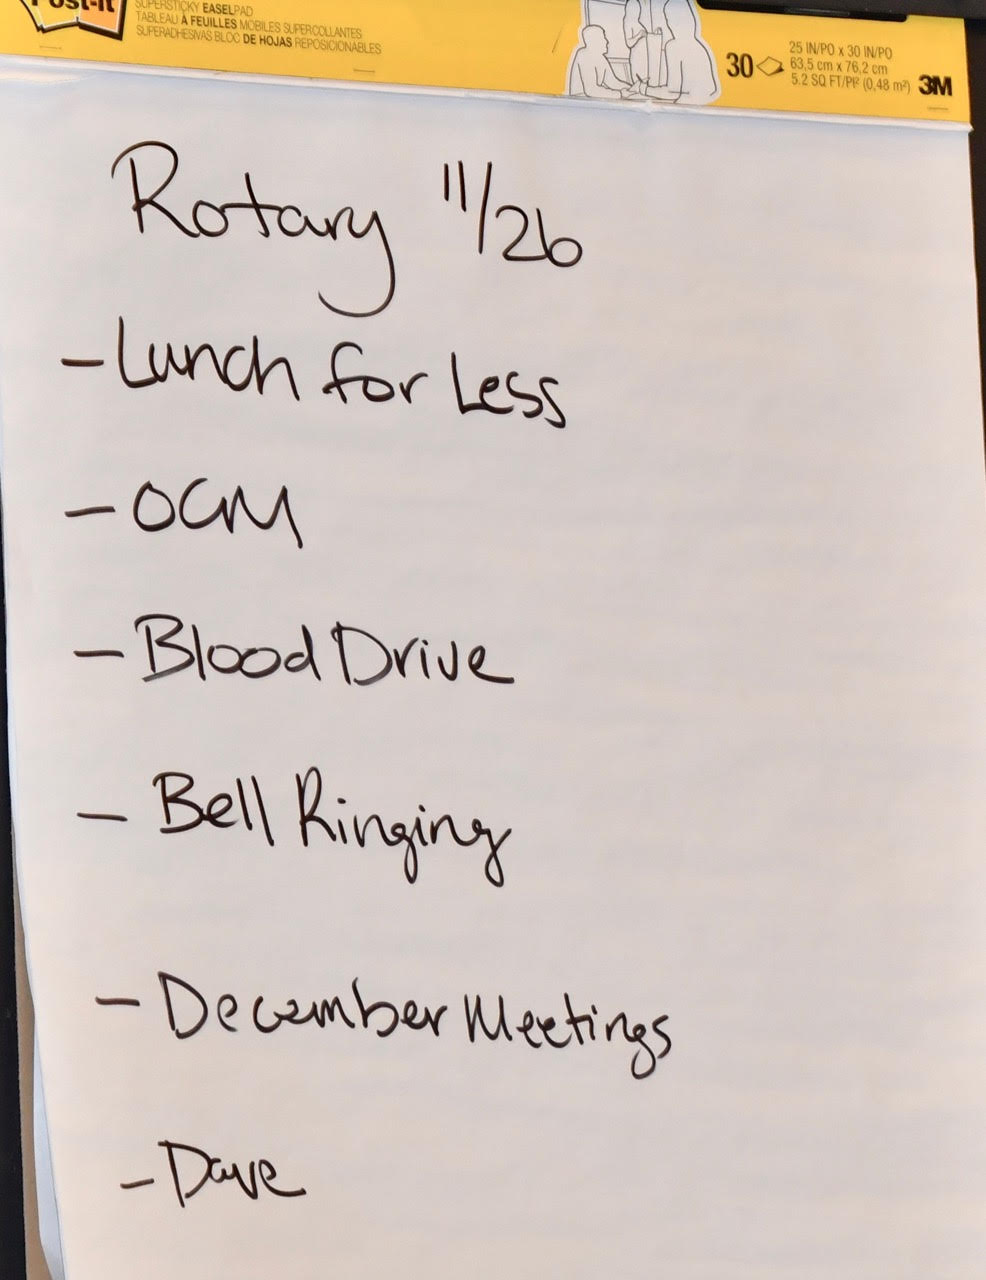 Post-it
SUPERSTICKY EASELPAD
TABLEAU À FEUILLES MOBILES SUPERCOLLANTES
SUPERADHESIVAS BLOC DE HOJAS REPOSICIONABLES
30
25 IN/PO x 30 IN/PO
63,5 cm x 76,2 cm
5.2 SQ FT/PI² (0,48 m²)
3M
Rotary 11/26
- Lunch for Less
- OCM
- Blood Drive
- Bell Ringing
- December Meetings
- Dave